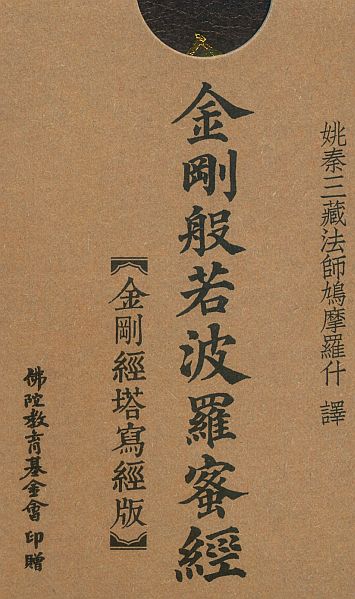 姚秦三藏法師鳩摩羅什 譯
金剛般若波羅蜜經
【金剛經塔寫經版】
佛陀教育基金會 印贈